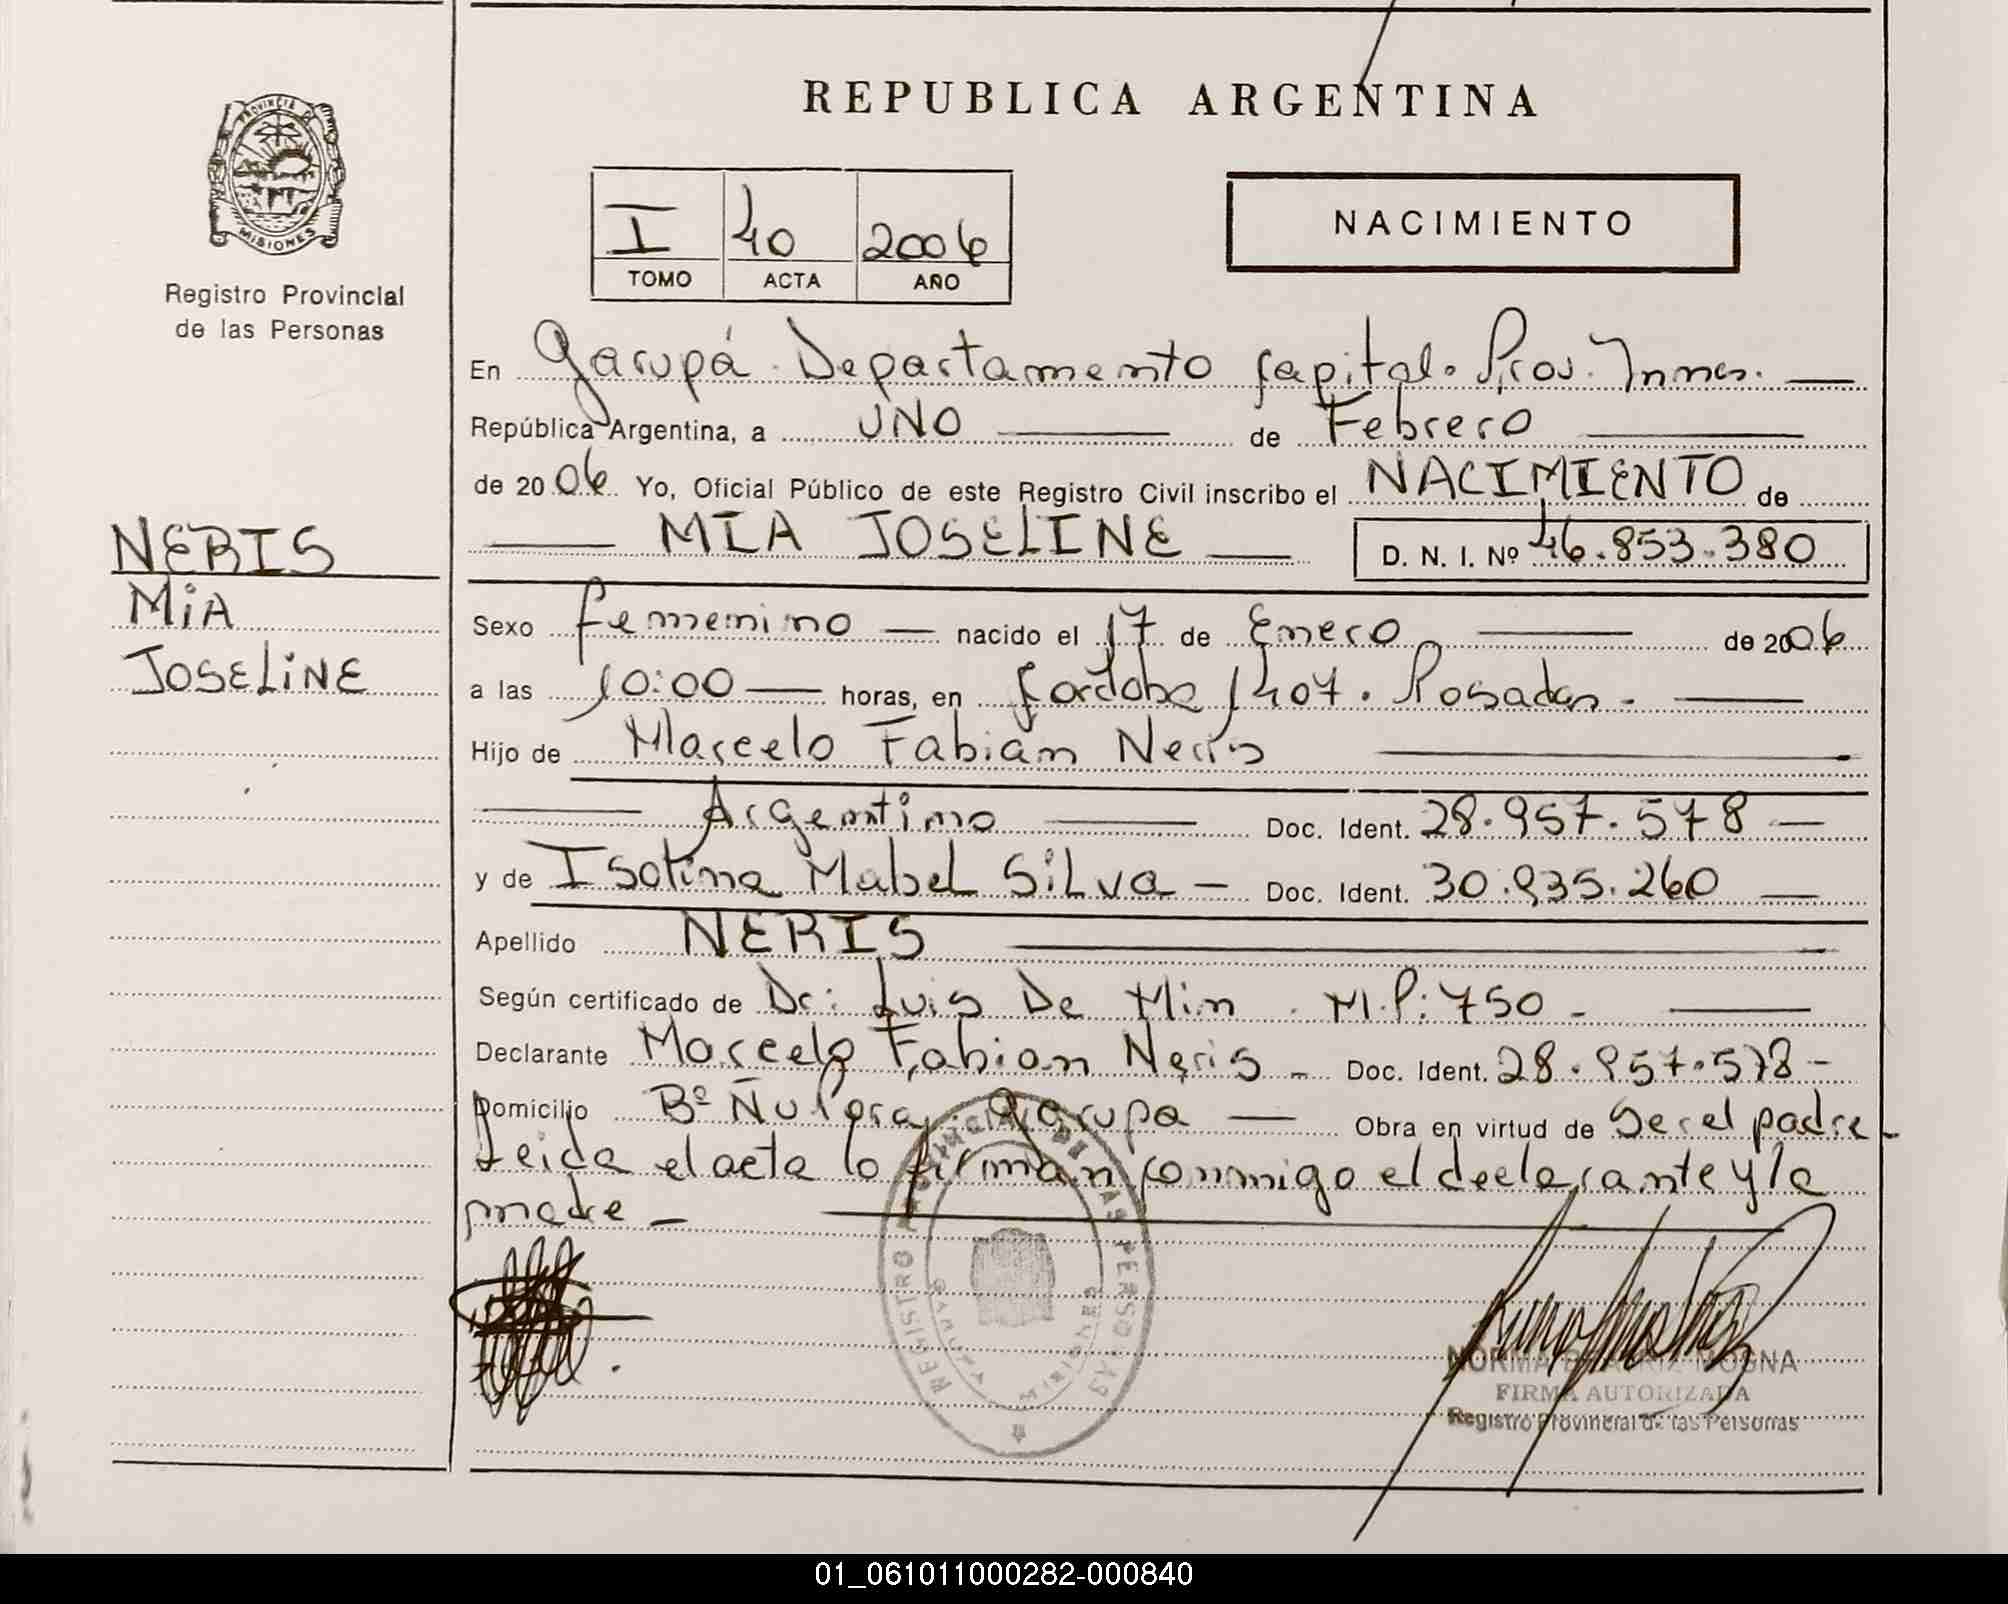 REPUBLICA ARGENTINA
PROVINCIA DE MISIONES
Registro Provincial
de las Personas
I 40 2006
TOMO ACTA AÑO
NACIMIENTO
En Garupá. Departamento Capital. Prov. Mnes.
República Argentina, a UNO de Febrero
de 2006 Yo, Oficial Público de este Registro Civil inscribo el NACIMIENTO de
MIA JOSELINE D. N. I. Nº 46.853.380
NERIS
MiA
JOSELiNE
Sexo femenino nacido el 17 de Enero de 2006
a las 10:00 horas, en Cordoba 1407. Posadas.
Hijo de Marcelo Fabian Neris
Argentino Doc. Ident. 28.957.578
y de Isolina Mabel Silva Doc. Ident. 30.935.260
Apellido NERIS
Según certificado de Dr: Luis De Min. M.P: 750
Declarante Marcelo Fabian Neris Doc. Ident. 28.957.578
Domicilio Bº Ñu Pora. Garupa Obra en virtud de Ser el padre
Leida el acta lo firman conmigo el declarante y la
madre
REGISTRO PROVINCIAL DE LAS PERSONAS
GARUPA MISIONES
NORMA BEATRIZ MOGNA
FIRMA AUTORIZADA
Registro Provincial de las Personas
01_061011000282-000840